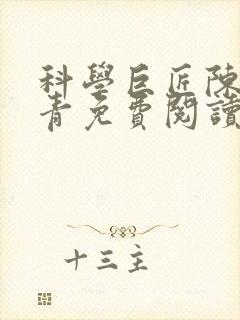 科學巨匠陳
青免費閱讀
十三主